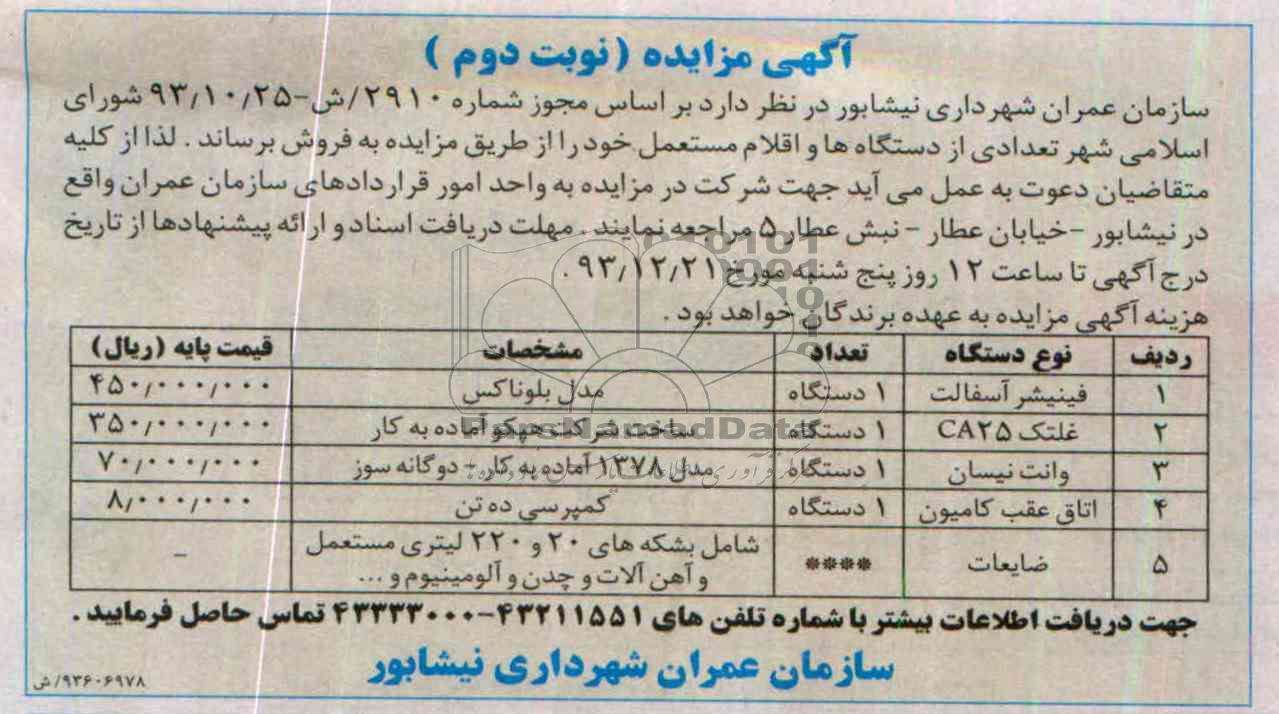 آگهی مزایده (نوبت دوم )
سازمان عمران شهرداری نیشابور در نظر دارد بر اساس مجوز شماره ۲۹۱۰/ش-۹۳/۱۰/۲۵ شورای
اسلامی شهر تعدادی از دستگاه ها و اقلام مستعمل خود را از طریق مزایده به فروش برساند . لذا از کلیه
متقاضیان دعوت به عمل می آید جهت شرکت در مزایده به واحد امور قراردادهای سازمان عمران واقع
در نیشابور -خیابان عطار - نبش عطار ۵ مراجعه نمایند . مهلت دریافت اسناد و ارائه پیشنهادها از تاریخ
درج آگهی تا ساعت ۱۲ روز پنج شنبه مورخ ۹۳/۱۲/۲۱ .
هزینه آگهی مزایده به عهده برندگان خواهد بود .
ردیف نوع دستگاه تعداد مشخصات قیمت پایه (ریال)
۱ فینیشر آسفالت ۱ دستگاه مدل بلوناکس ۴۵۰/۰۰۰/۰۰۰
۲ غلتک CA۲۵ ۱ دستگاه ساخت شرکت هپکو آماده به کار ۳۵۰/۰۰۰/۰۰۰
۳ وانت نیسان ۱ دستگاه مدل ۱۳۷۸ آماده به کار - دوگانه سوز ۷۰/۰۰۰/۰۰۰
۴ اتاق عقب کامیون ۱ دستگاه کمپرسی ده تن ۸/۰۰۰/۰۰۰
۵ ضایعات **** شامل بشکه های ۲۰ و ۲۲۰ لیتری مستعمل
و آهن آلات و چدن و آلومینیوم و ... -
جهت دریافت اطلاعات بیشتر با شماره تلفن های ۴۳۲۱۱۵۵۱-۴۳۳۳۳۰۰۰ تماس حاصل فرمایید .
سازمان عمران شهرداری نیشابور
۹۳۶۰۶۹۷۸/ش
ParsNamadData